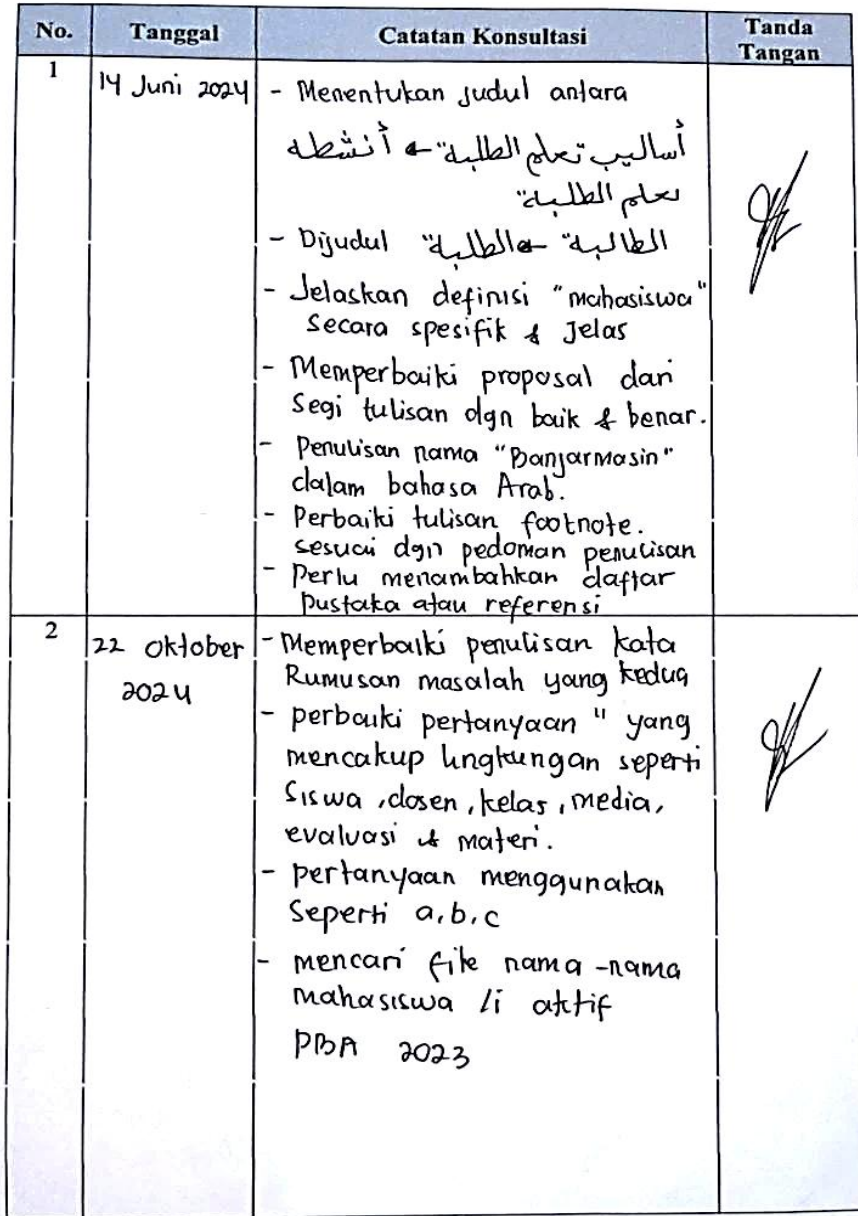 No. Tanggal Catatan Konsultasi Tanda Tangan
1 14 Juni 2024 - Menentukan Judul antara
أساليب تعلم الطلبة" ← أنشطه
تعلم الطلبة"
- Dijudul "الطالبة" ← الطلبة"
- Jelaskan definisi "mahasiswa"
secara spesifik & Jelas
- Memperbaiki proposal dari
Segi tulisan dgn baik & benar.
- Penulisan nama "Banjarmasin"
dalam bahasa Arab.
- Perbaiki tulisan footnote.
sesuai dgn pedoman penulisan
- Perlu menambahkan daftar
Pustaka atau referensi
2 22 Oktober 2024 - Memperbaiki penulisan kata
Rumusan masalah yang kedua
- perbaiki pertanyaan " yang
mencakup lingkungan seperti
Siswa, dosen, kelas, media,
evaluasi & materi.
- pertanyaan menggunakan
Seperti a, b, c
- mencari file nama-nama
mahasiswa/i aktif
PBA 2023